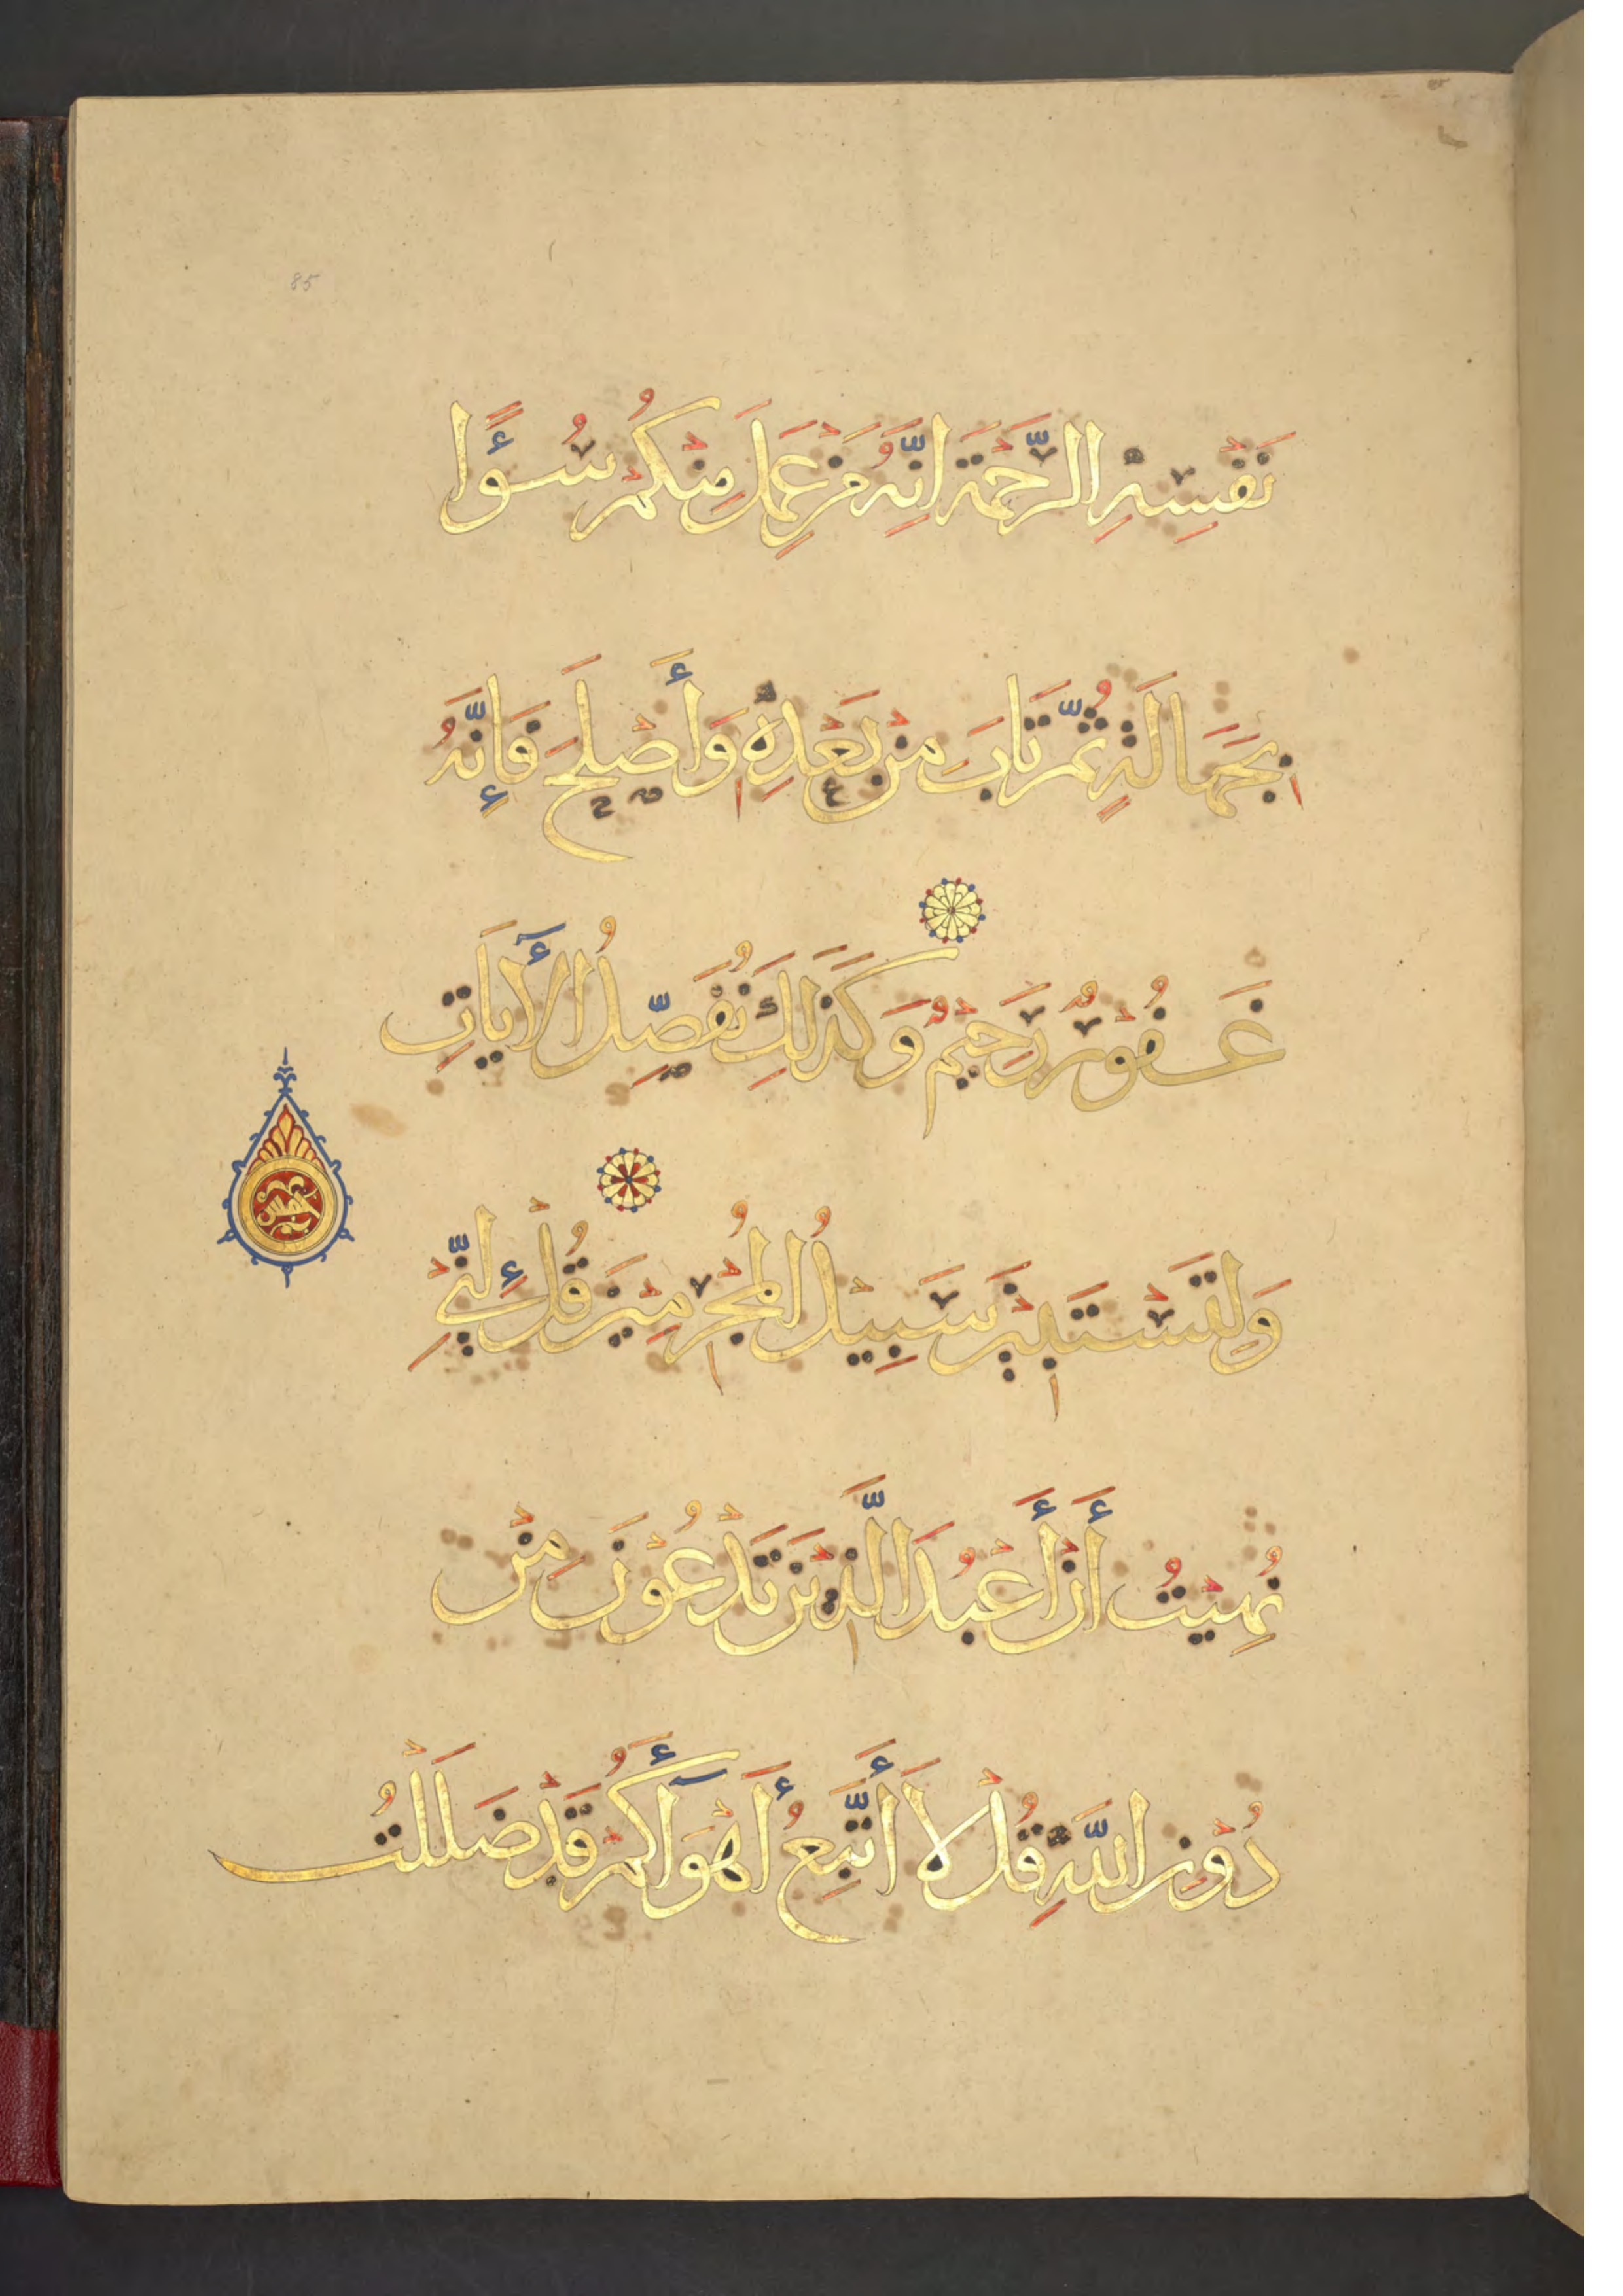 85
نَفْسِهِ الرَّحْمَةَ اِنَّهُ مَنْ عَمِلَ مِنْكُمْ سُوْءًا
بِجَهَالَةٍ ثُمَّ تَابَ مِنْ بَعْدِهِ وَأَصْلَحَ فَإِنَّهُ
غَفُوْرٌ رَحِيْمٌ وَكَذَلِكَ نُفَصِّلُ الْأَيَاتِ
وَلِتَسْتَبِيْنَ سَبِيْلُ الْمُجْرِمِيْنَ قُلْ إِنِّيْ
نُهِيْتُ أَنْ أَعْبُدَ الَّذِيْنَ تَدْعُوْنَ مِنْ
دُوْنِ اللّٰهِ قُلْ لَا أَتَّبِعُ أَهْوَآءَكُمْ قَدْ ضَلَلْتُ